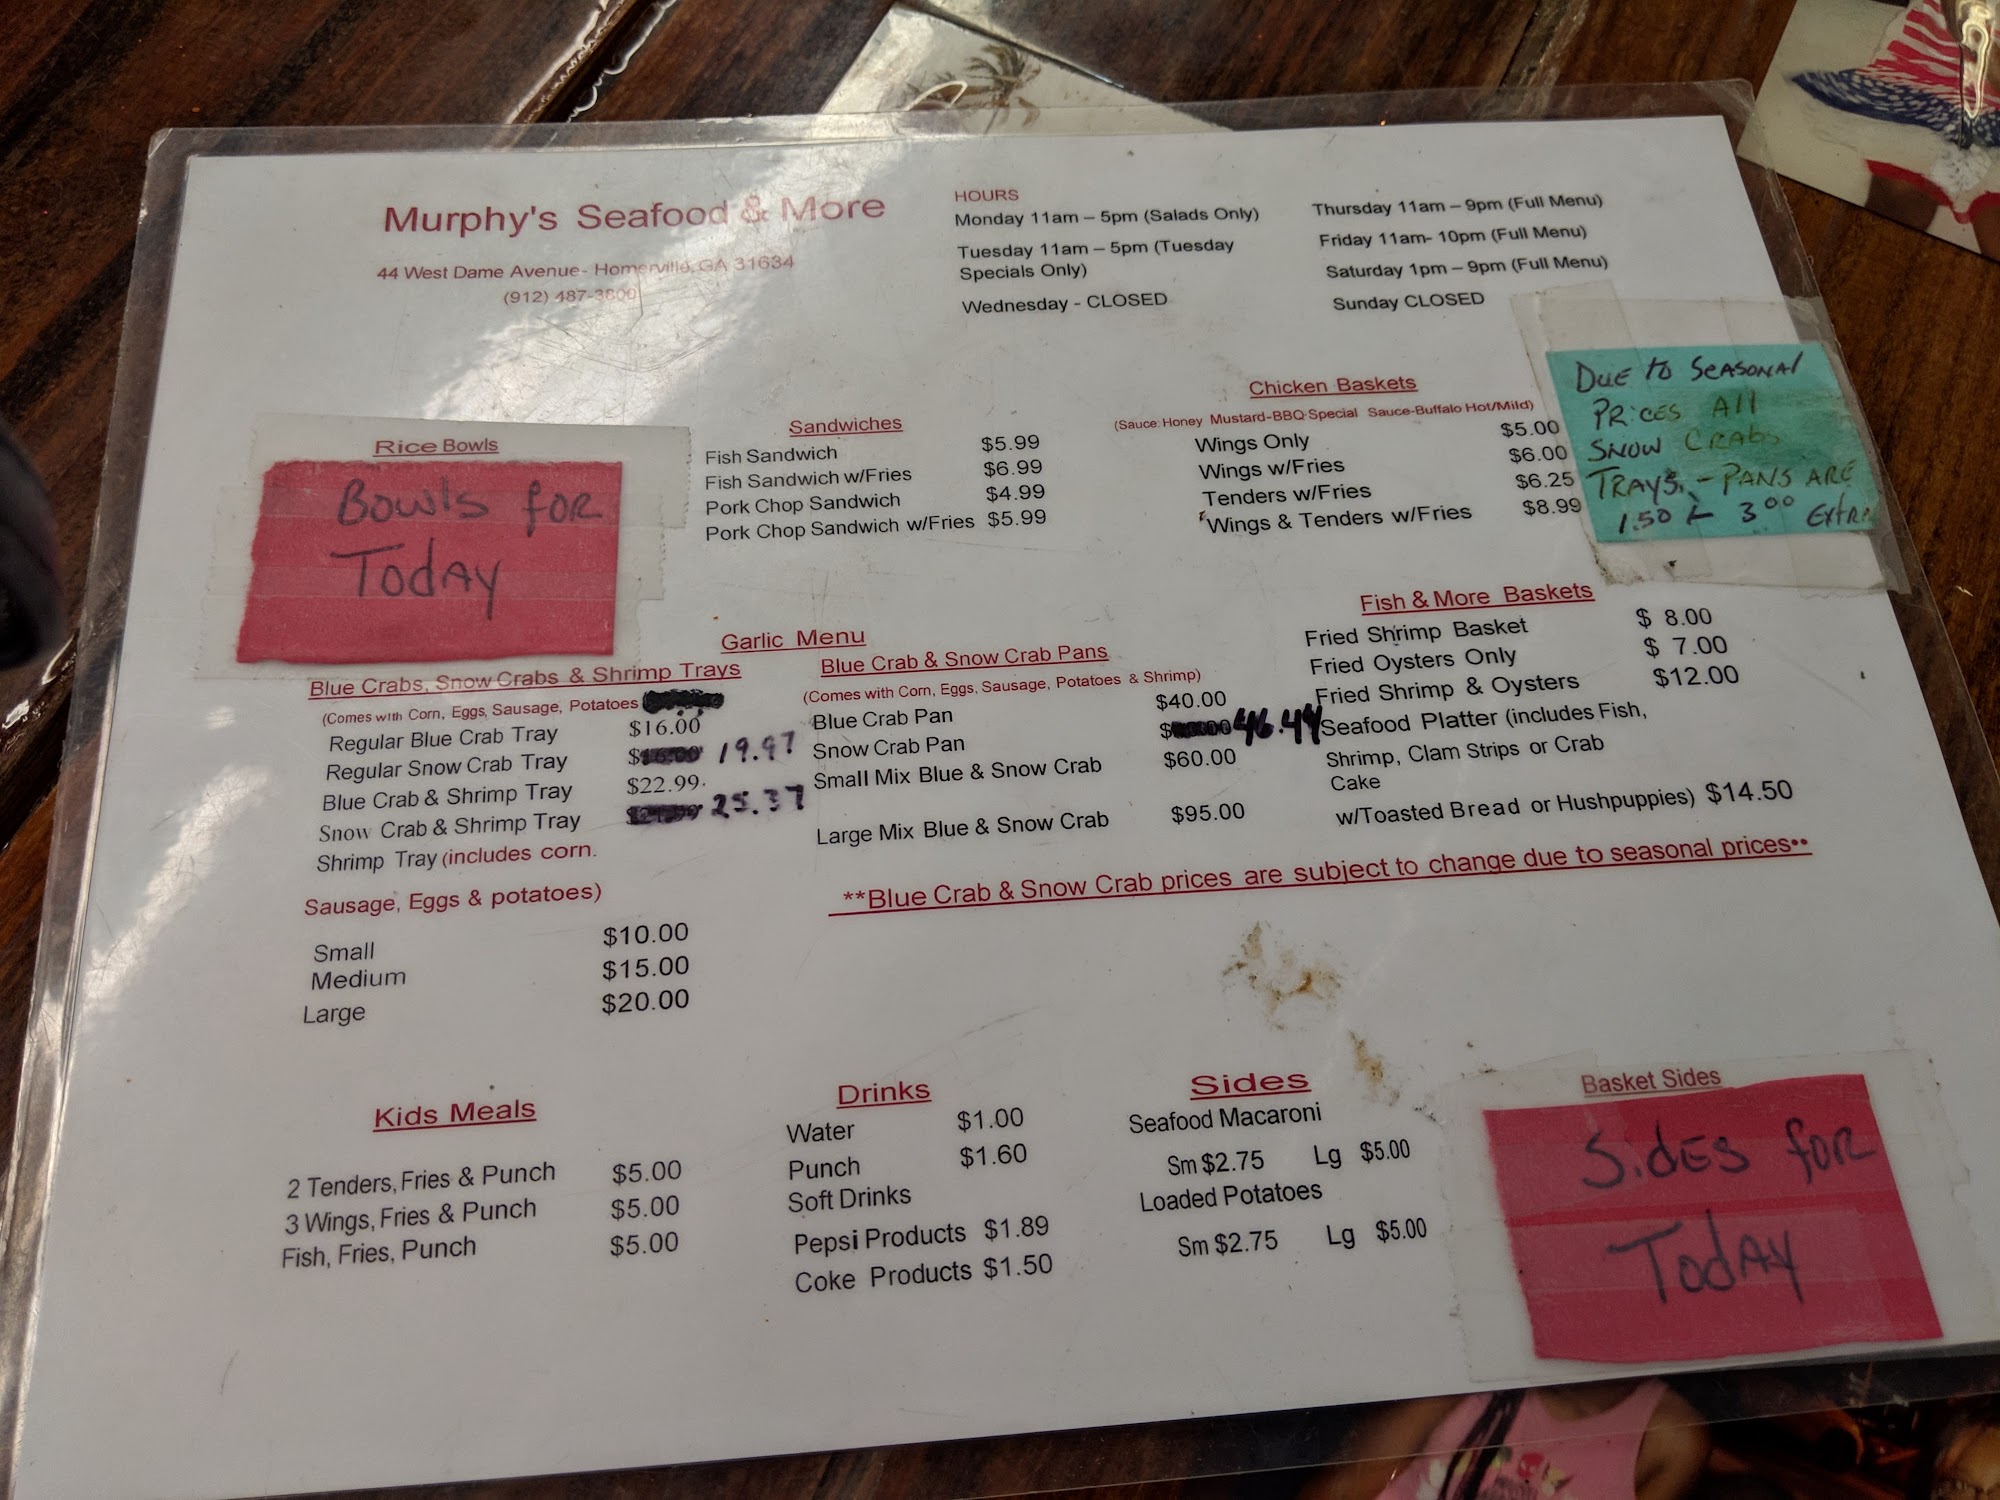 Murphy's Seafood & More
44 West Dame Avenue- Homerville, GA 31634
(912) 487-3800
HOURS
Monday 11am – 5pm (Salads Only)
Tuesday 11am – 5pm (Tuesday
Specials Only)
Wednesday - CLOSED
Thursday 11am – 9pm (Full Menu)
Friday 11am- 10pm (Full Menu)
Saturday 1pm – 9pm (Full Menu)
Sunday CLOSED
Rice Bowls
Bowls for
Today
Sandwiches
Fish Sandwich $5.99
Fish Sandwich w/Fries $6.99
Pork Chop Sandwich $4.99
Pork Chop Sandwich w/Fries $5.99
Chicken Baskets
(Sauce: Honey Mustard-BBQ Special Sauce-Buffalo Hot/Mild)
Wings Only $5.00
Wings w/Fries $6.00
Tenders w/Fries $6.25
Wings & Tenders w/Fries $8.99
Due to Seasonal
Prices All
Snow Crabs
Trays, - Pans are
1.50 - 3.00 Extra
Garlic Menu
Blue Crabs, Snow Crabs & Shrimp Trays
(Comes with Corn, Eggs, Sausage, Potatoes
Regular Blue Crab Tray $16.00
Regular Snow Crab Tray 19.97
Blue Crab & Shrimp Tray $22.99
Snow Crab & Shrimp Tray 25.37
Shrimp Tray (includes corn.
Sausage, Eggs & potatoes)
Small $10.00
Medium $15.00
Large $20.00
Blue Crab & Snow Crab Pans
(Comes with Corn, Eggs, Sausage, Potatoes & Shrimp)
Blue Crab Pan $40.00
Snow Crab Pan 46.44
Small Mix Blue & Snow Crab $60.00
Large Mix Blue & Snow Crab $95.00
Fish & More Baskets
Fried Shrimp Basket $ 8.00
Fried Oysters Only $ 7.00
Fried Shrimp & Oysters $12.00
Seafood Platter (includes Fish,
Shrimp, Clam Strips or Crab
Cake
w/Toasted Bread or Hushpuppies) $14.50
**Blue Crab & Snow Crab prices are subject to change due to seasonal prices**
Kids Meals
2 Tenders, Fries & Punch $5.00
3 Wings, Fries & Punch $5.00
Fish, Fries, Punch $5.00
Drinks
Water $1.00
Punch $1.60
Soft Drinks
Pepsi Products $1.89
Coke Products $1.50
Sides
Seafood Macaroni
Sm $2.75 Lg $5.00
Loaded Potatoes
Sm $2.75 Lg $5.00
Basket Sides
Sides for
Today